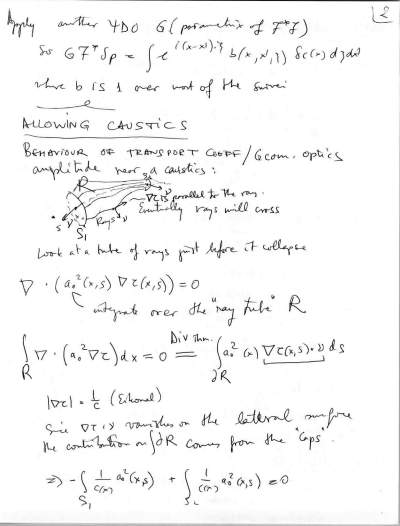 2
Apply another ΨDO G (parametrix of F*F)
So G F* δρ = ∫ e^{i(x-x')·ξ} b(x, x', ξ) δc(x) dξ dx
where b is 1 over most of the
ALLOWING CAUSTICS
BEHAVIOUR OF TRANSPORT COEFF/Geom. optics
amplitude near a caustics:
R
S₂
ν
∇τ is parallel to the ray.
Eventually rays will cross
s
ν
Rays
ν
S₁
Look at a tube of rays just before it collapse
∇ · (a₀²(x,s) ∇τ(x,s)) = 0
integrate over the "ray tube" R
Div thm.
∫_R ∇ · (a₀² ∇τ) dx = 0 = ∫_{∂R} a₀²(x) ∇τ(x,s) · ν ds
|∇τ| = 1/c (Eikonal)
Since ∇τ · ν vanishes on the lateral surface
the contribution on ∫∂R comes from the "Caps".
⇒ - ∫_{S₁} 1/c(x) a₀²(x,s) + ∫_{S₂} 1/c(x) a₀²(x,s) = 0